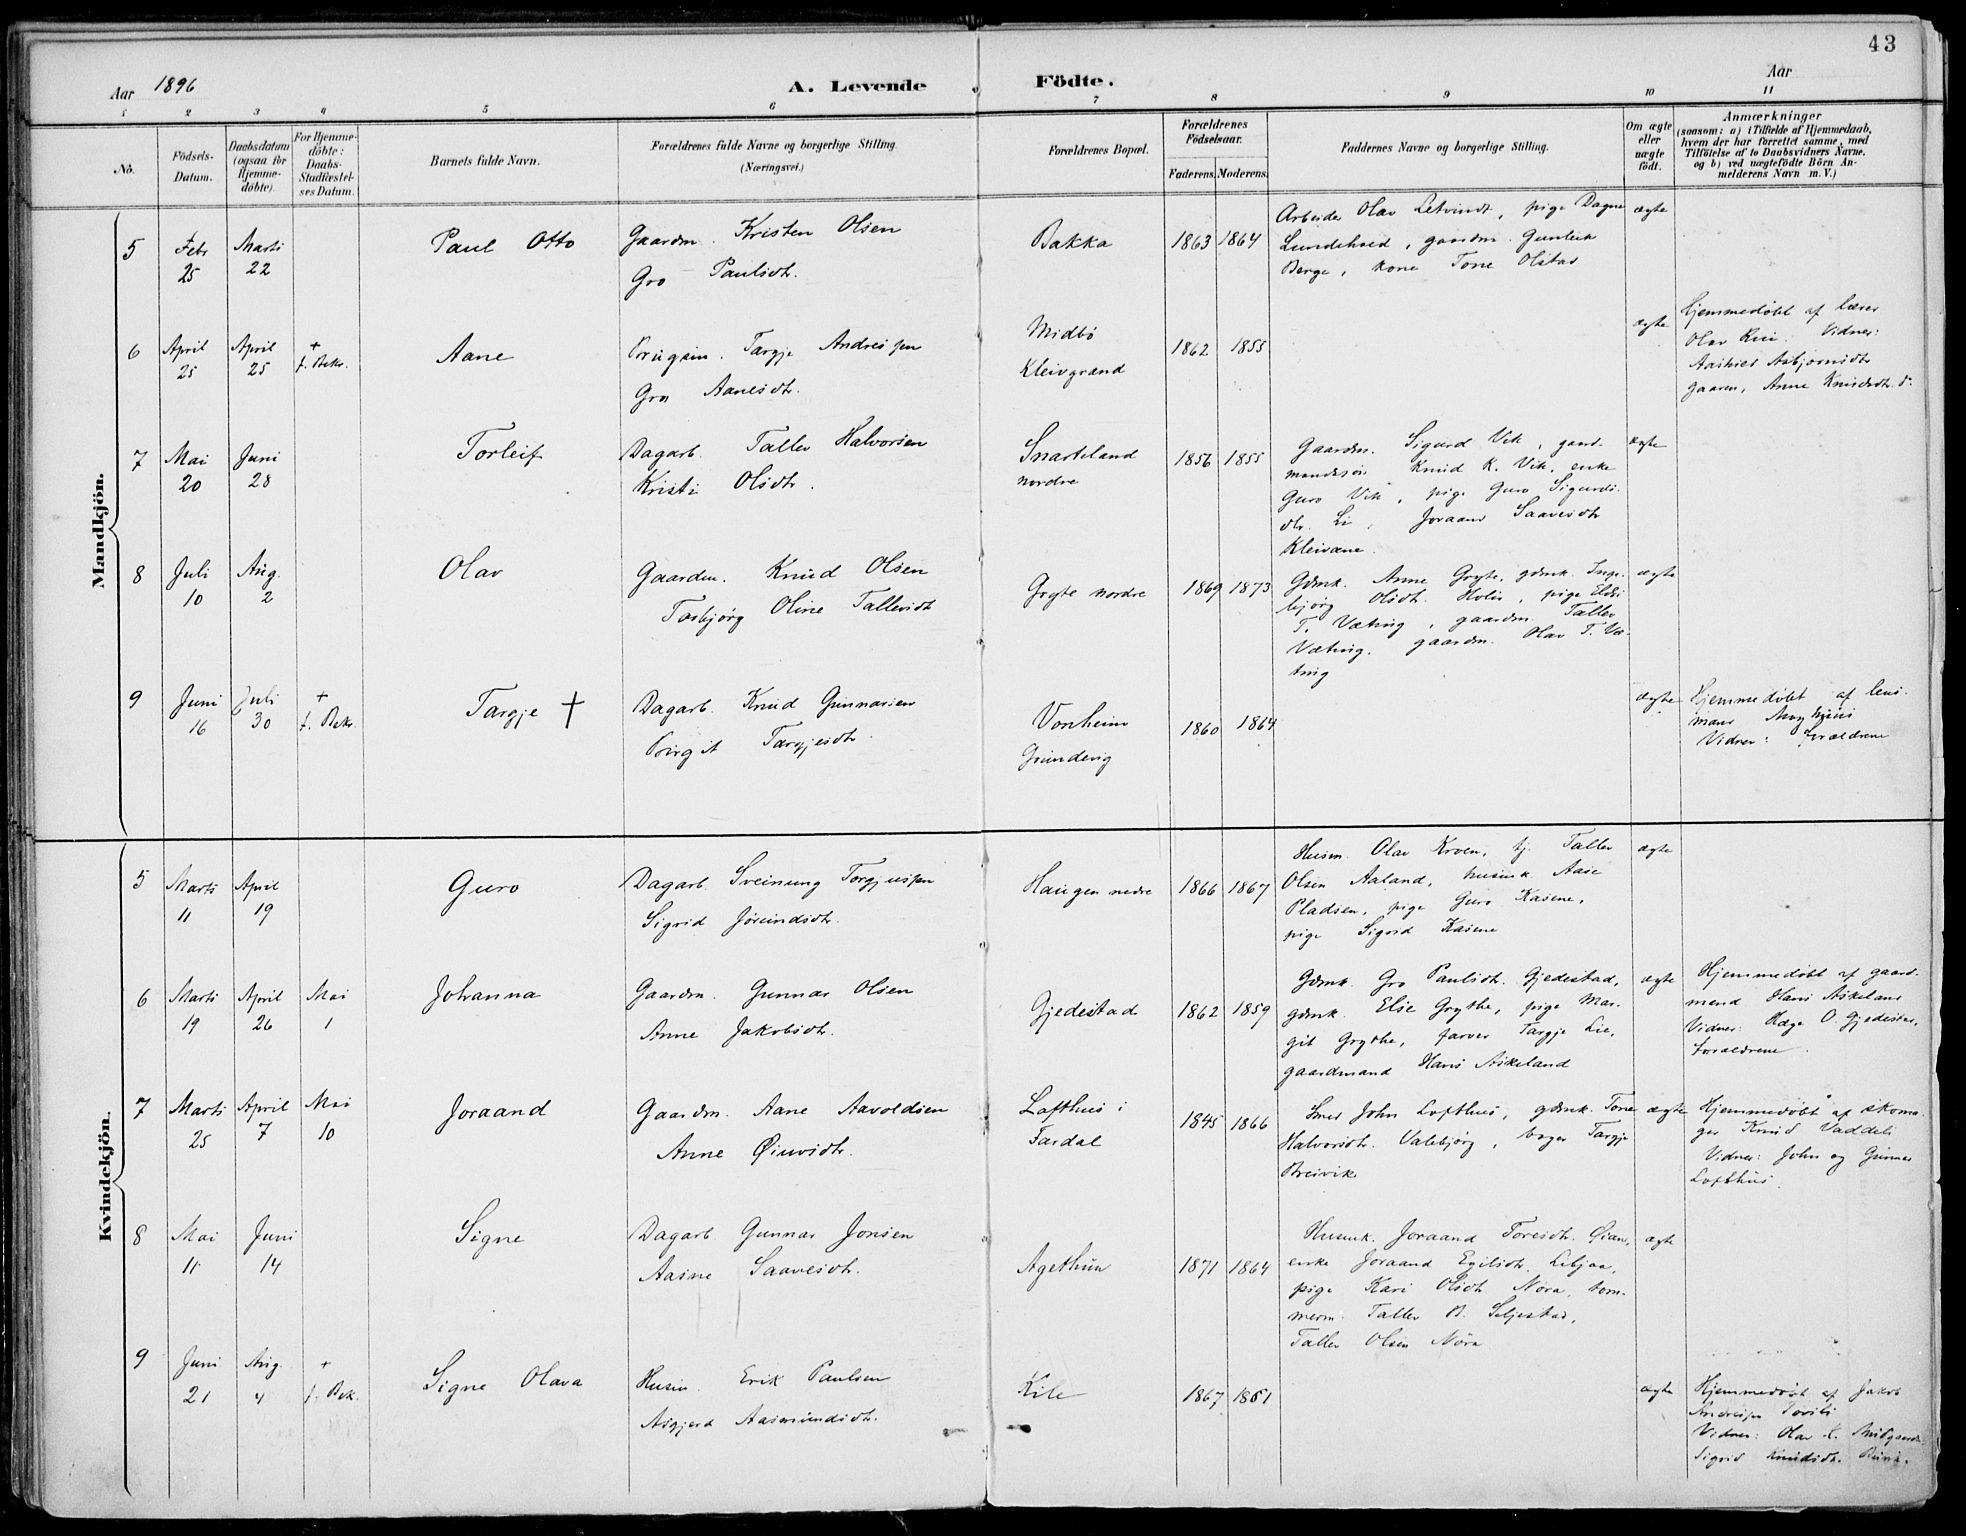 43
Aar 1896
A. Levende Födte.
Aar
1 2 3 4 5 6 7 8 9 10 11
No.
Födsels-
Datum.
Daabsdatum
(ogsaa for
Hjemme-
döbte).
For Hjemme-
döbte:
Daabs-
Stadfæstel-
ses Datum.
Barnets fulde Navn.
Forældrenes fulde Navne og borgerlige Stilling.
(Næringsvei.)
Forældrenes Bopæl.
Forældrenes
Födselsaar.
Faderens. Moderens.
Faddernes Navne og borgerlige Stilling.
Om ægte
eller
uægte
født.
Anmærkninger
(saasom: a) i Tilfælde af Hjemmedaab,
hvem der har forrettet samme, med
Tilföielse af to Daabsvidners Navne,
og b) ved uægtefödte Börn An-
melderens Navn m. V.)
Mandkjön.
5
Febr
25
Marts
22
Paul Otto
Gaardm. Kristen Olsen
Gro Paulsdt.
Bakka
1863 1864
Arbeider Olav Letvindt, pige Dagne
Lundehved, gaardm. Gunleik
Berge, kone Tone Olstad
ægte
6
April
25
April
25
+
f. Bekr.
Aane
Brugsm. Targje Andresen
Gro Aanesdt.
Midbö
Kleivgrend
1862 1855
ægte
Hjemmedøbt af lærer
Olav Vidner:
Asbjørnsdtr
gaaren, Anne Knudsdt. do
7
Mai
20
Juni
28
Torleif
Dagarb. Tallev Halvorsen
Kristi Olsdt.
Snarteland
nordre
1856 1855
Gaardm. Sigurd Vik, gaard-
mandssøn Knud K. Vik, enke
Guro Vik, pige Guro Sigurds-
dtr. Li, Joraand Saavesdt
Kleivane.
ægte
8
Juli
10
Aug.
2
Olav
Gaardm. Knud Olsen
Torbjørg Oline Tallevsdt
Gryte nordre
1869 1873
Gdmk. Anne Gryte, gdmk. Inge-
bjørg Olsdt. Holis, pige
T. Vætting, gaardm. Tallev
Vætting, gaardm. Olav T. Væ-
ting
ægte
9
Juni
16
Juli
30
+
f. Bekr.
Targje †
Dagarb. Knud Gunnarsen
Birgit Targjesdt.
Vonheim
Grundevig
1860 1864
ægte
Hjemmedøbt af lens-
mand
Vidner: forældrene
Kvindekjön.
5
Marts
11
April
19
Guro
Dagarb. Sveinung Torgjusen
Sigrid Jørundsdt.
Haugen nedre
1866 1867
Husm. Olav Kroen, tj. Tallev
Olsen Aaland, husmk. Aase
Pladsen, pige Guro Kasene,
pige Sigrid Kasene
ægte
6
Marts
19
April
26
Mai
1
Johanna
Gaardm. Gunnar Olsen
Anne Jakobsdt.
Gjedestad
1862 1859
Gdmk. Gro Paulsdt. Gjedestad,
gdmk. Else Grythe, pige Mar-
git Grythe, farver Targje Lie,
gaardmand Hans Askeland
ægte
Hjemmedøbt af gaard-
mand Hans Askeland
Vidner: Hæge O. Gjedestad,
forældrene.
7
Marts
25
April
7
Mai
10
Joraand
Gaardm. Aane Aavoldsen
Anne Øiuvsdt.
Lofthus i
Fardal
1845 1866
Smed John Lofthus, gdmk. Tone
Halvorsdt. Valebjørg, bager Targje
Breivik
ægte
Hjemmedøbt af skoma-
ger Knud Vaddeli
Vidner: John og Gunnar
Lofthus.
8
Mai
11
Juni
14
Signe
Dagarb. Gunnar Jonsen
Aasne Saavesdt.
Agethun
1871 1864
Husmk. Joraand Toresdt. Øian,
enke Joraand Egilsdt. Libjaa,
pige Kari Olsdt. Nora, tøm-
merm. Tallev B. Seljestad,
Tallev Olsen Nora
ægte
9
Juni
21
Aug.
4
+
f. Bek.
Signe Olava
Husm. Erik Paulsen
Asgjerd Aasmundsdt.
Kile
1867 1861
ægte
Hjemmedøbt af Jakob
Andresen
Vidner: Olav K.
Sigrid Knudsdt.